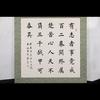 有志者事竟成
百二秦關終屬
楚苦心人天不
負三千越甲可
吞吳